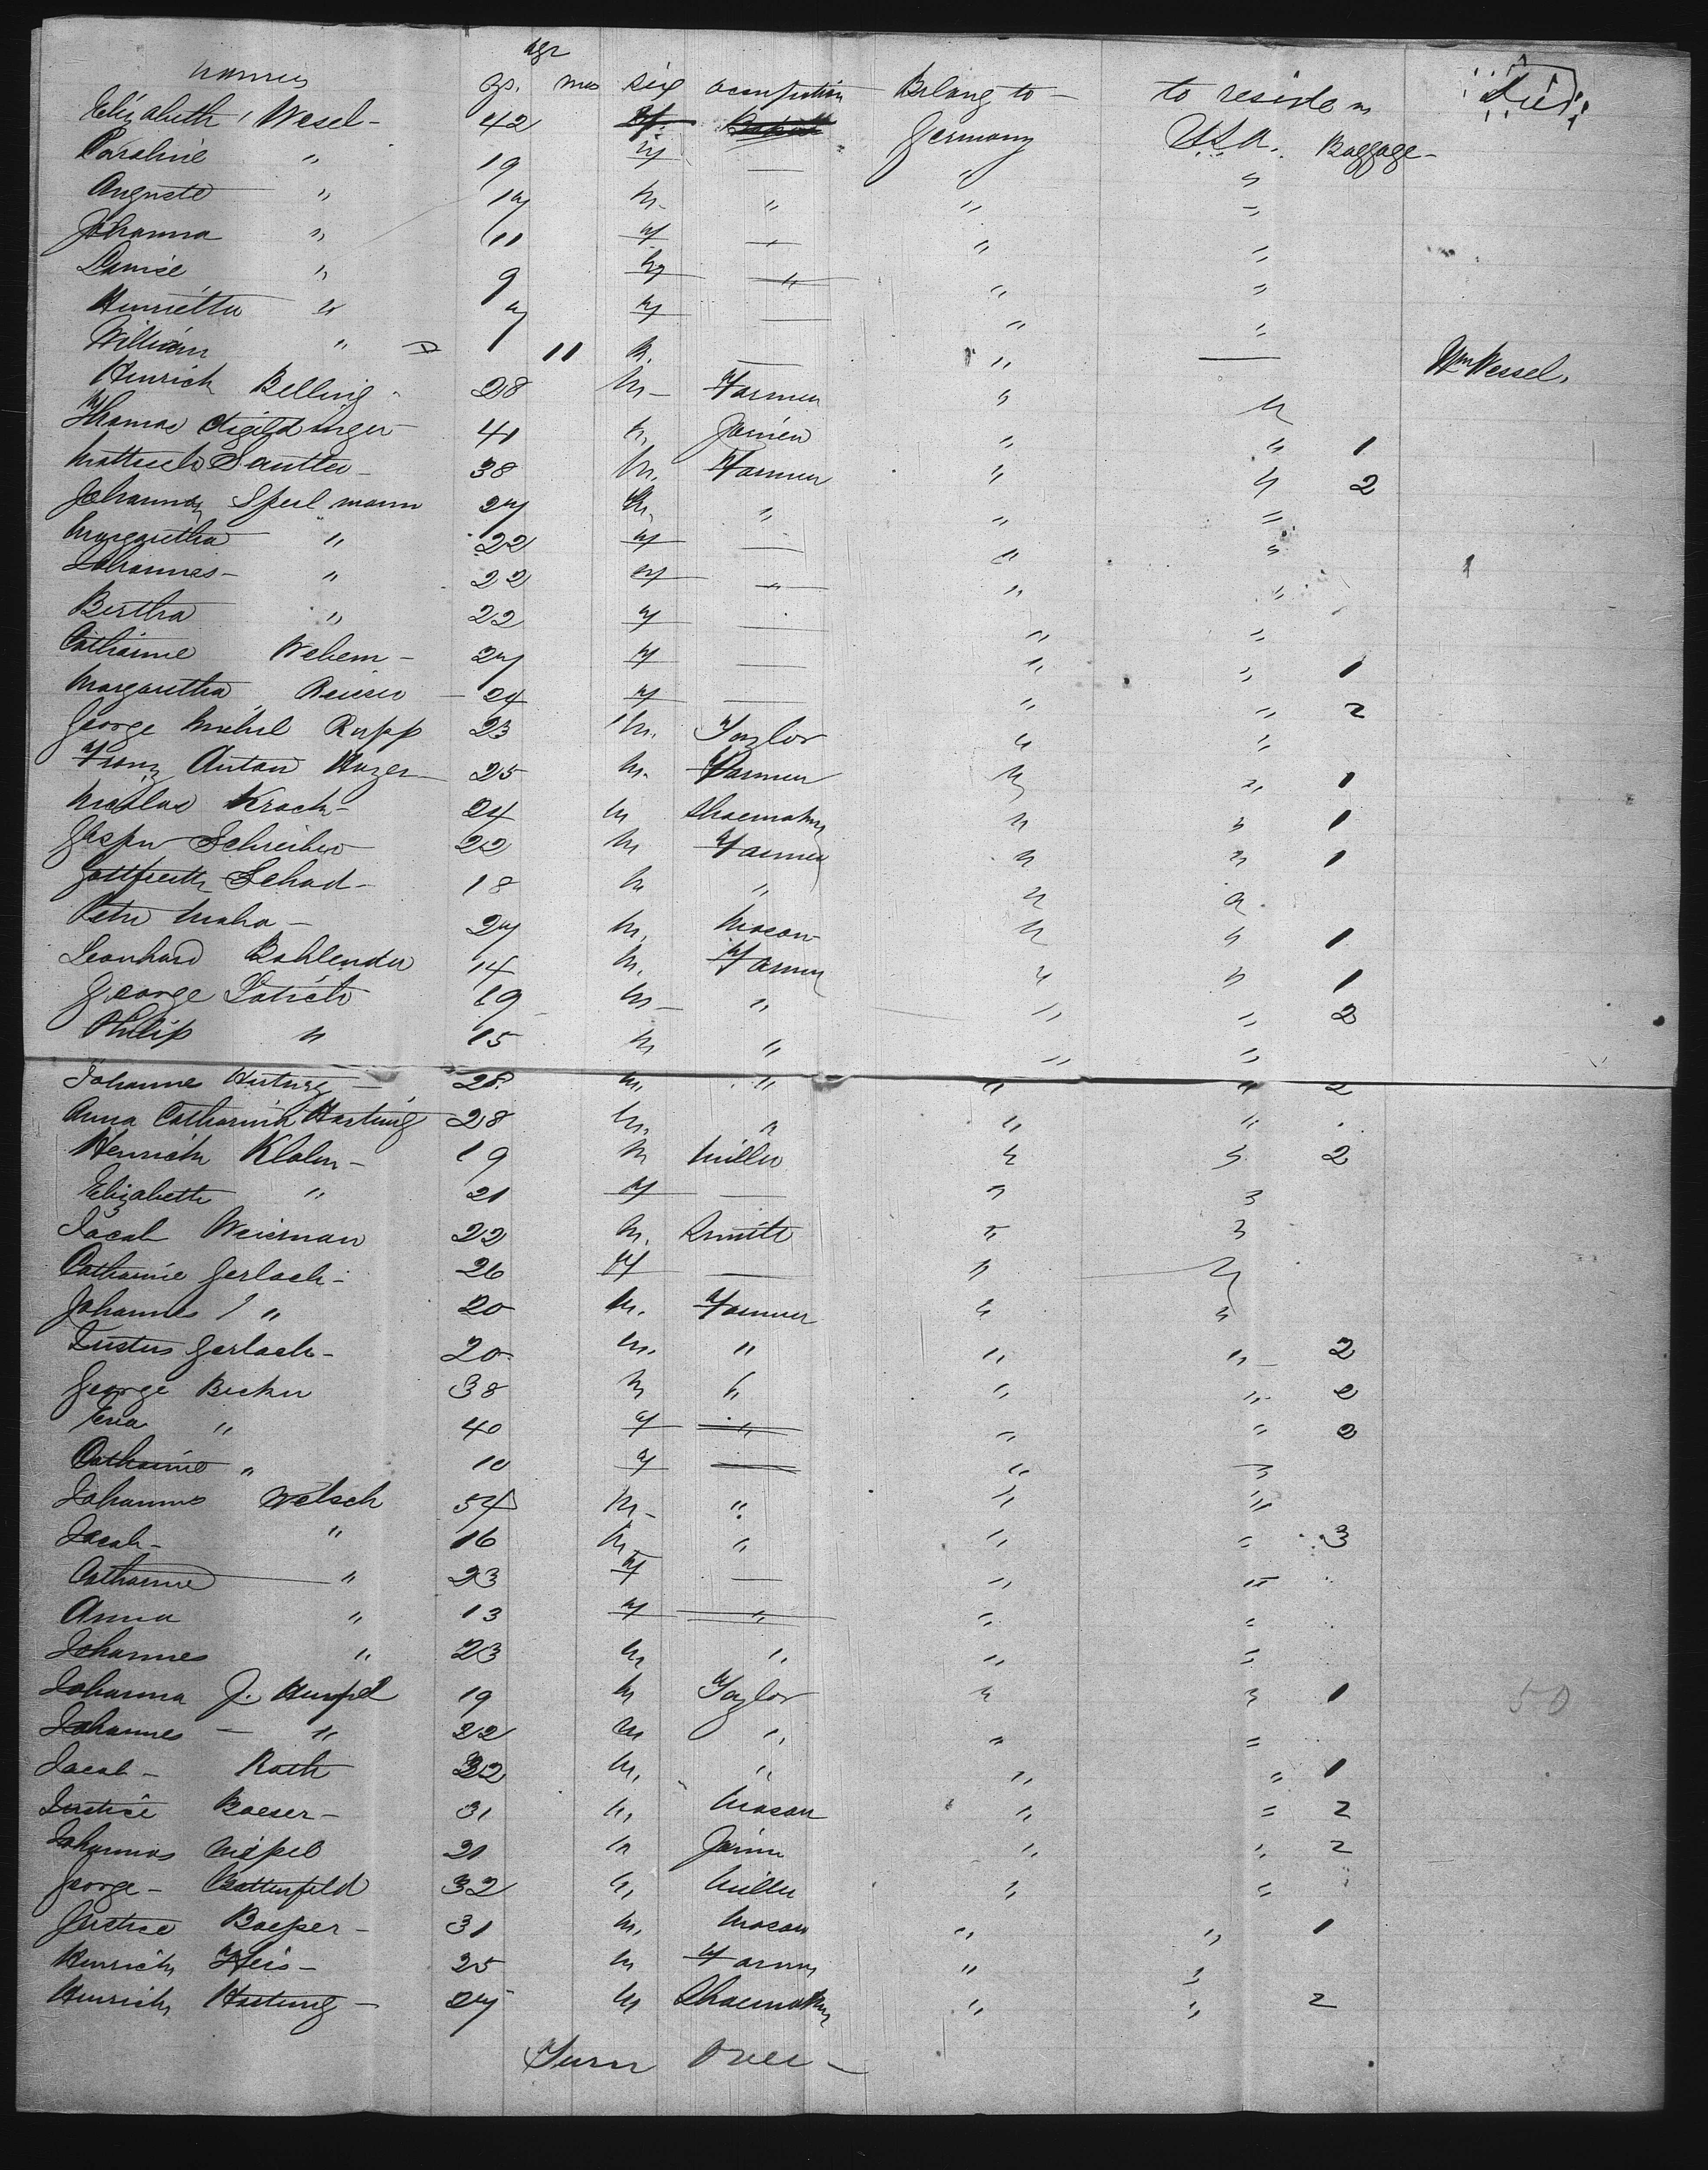 names age
ys. mos sex occupation Belong to — to reside in Died
Elizabeth Wesel - 42 f. Germany U.S.A. Baggage -
Caroline " 19 f — " "
Auguste " 17 m. " " "
Johanna " 11 f " "
Louise " 9 f " "
Henrietta " 7 f — " "
William " 11 m. — " — Wm Wessel.
Hinrich Belling 28 m - Farmer " "
Thomas 41 m. " " 1
Sautter - 38 m. Farmer " " 2
Johannes Speel mann 27 m. " " "
Margaretha " 22 f — " " 1
Johannes - " 22 f — " "
Bertha " 22 f — " "
Catharine Wehem - 27 f — " " 1
Margaretha — 24 f — " " 2
George Michel Rupp 23 m. Taylor " "
Franz Anton 25 m. Farmer " " 1
Nicolas Krach - 24 m Shoemaker " " 1
Schreiber 22 m Farmer " " 1
Gottfrieth Schad - 18 m " " "
Peter — 27 m. Mason " " 1
Leonhard Bohlender 14 m. Farmer " " 1
George 19 m - " " " 2
Philip " 15 m " " "
Johannes — 28. m. " " " 2
Anna Catharina Hartung 28 m. " " "
Henrich Klohn - 19 m Miller " " 2
Elizabeth " 21 f — " "
Jacob Weisman 22 m. Smith " "
Catharine Gerlach - 26 f — " "
Johannes " 20 m. Farmer " "
Justus Gerlach - 20. m. " " " 2
George Becker 38 m " " " 2
Eva " 40 f " " " 2
Catharine " 10 f — " "
Johannes Welsch 54 m - " " "
Jacob - " 16 m - " " " 3
Catharine " 23 f — " "
Anna " 13 f " " "
Johannes " 23 m " " "
Johanna J. 19 m Taylor " " 1 50
Johannes — " 22 m " " "
Jacob - Roth 32 m. " " " 1
Justice Boeser - 31 m. Mason " " 2
Johannes 21 m " " 2
George - Battenfeld 32 m. Miller " "
Justice Boeper - 31 m. Mason " " 1
Henrich - 25 m Farmer " "
Henrich Hartung - 27 m Shoemaker " " 2
Turn Over —